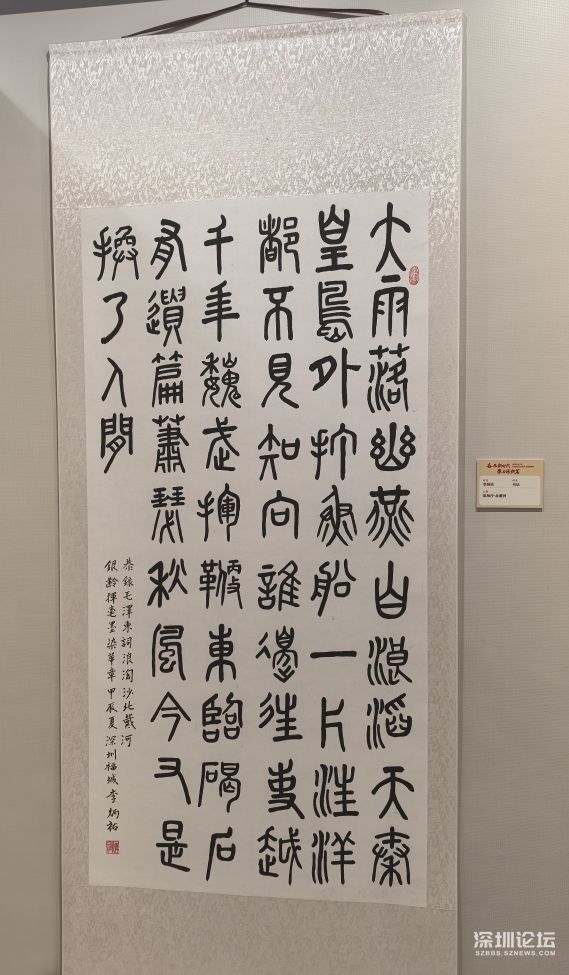 大雨落幽燕白浪滔天秦
皇島外打魚船一片汪洋
都不見知向誰邊往事越
千年魏武揮鞭東臨碣石
有遺篇蕭瑟秋風今又是
換了人間
恭錄毛澤東詞浪淘沙北戴河
銀齡揮毫墨染華章甲辰夏深圳福城李炳祐
浪淘沙·北戴河
深圳论坛
SZBBS.SZNEWS.COM